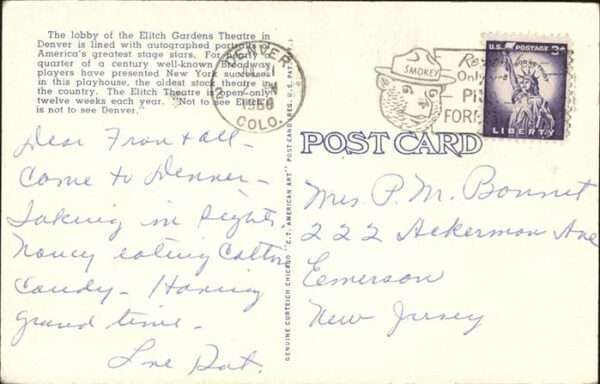 The lobby of the Elitch Gardens Theatre in
Denver is lined with autographed portraits of
America's greatest stage stars. For nearly a
quarter of a century well-known Broadway
players have presented New York successes
in this playhouse, the oldest stock theatre in
the country. The Elitch Theatre is open only
twelve weeks each year. "Not to see Elitch's
is not to see Denver."
DENVER
COLO.
SMOKEY
Only
FOR
U.S. POSTAGE 3¢
LIBERTY
POST CARD
GENUINE CURTEICH CHICAGO "C.T. AMERICAN ART" POST CARD (REG. U.S. PAT. OFF.)
Dear Fron & all -
Came to Denver -
taking in sights,
Nancy eating Cotton
Candy - Having
grand time -
Love Dot.
Mrs. P. M. Bonnet
222 Ackerman Ave
Emerson
New Jersey